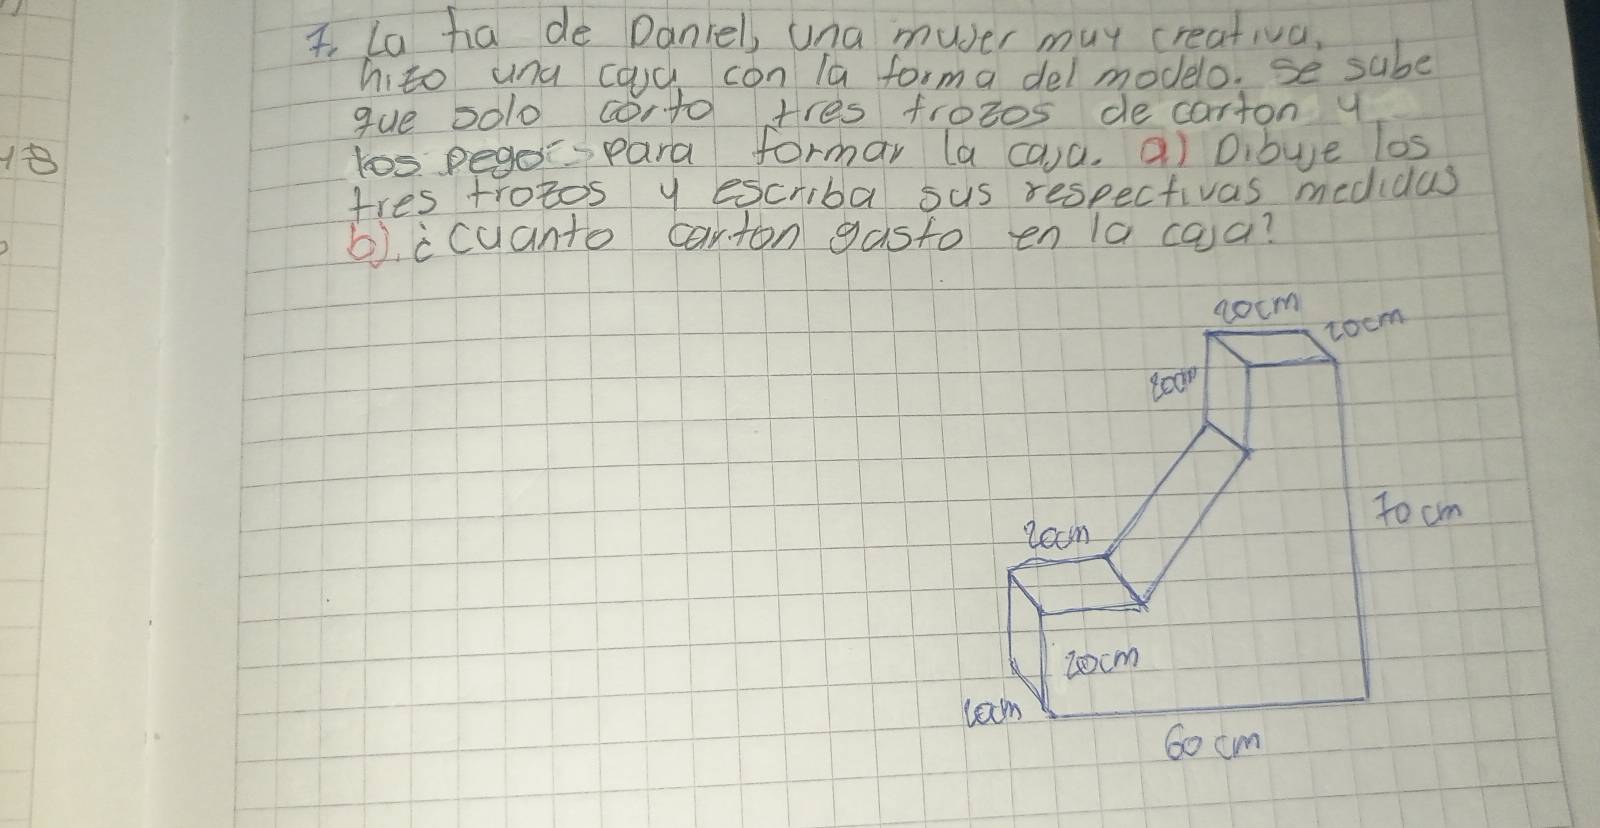 7. La tia de Daniel, una mujer muy creativa,
hizo una caja con la forma del modelo. se sabe
que solo corto tres trozos de carton y
los pego para formar la caja. a) Dibuje los
18
tres trozos y escriba sus respectivas medidas
b). ¿cuanto carton gasto en la caja?
20cm
20cm
20cm
70 cm
20cm
20cm
60 cm